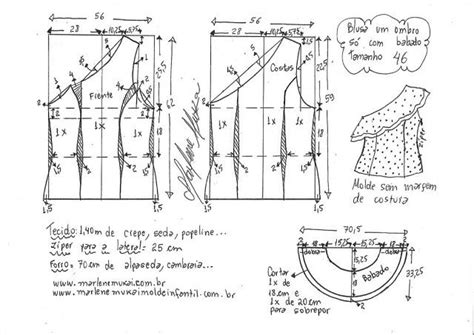 56
28
10,25
5,25
Frente
1x
1x
1x
2
2
23,5
62
18
1,5
1,5
56
28
10,25
5,25
Costas
1x
1x
2
22,5
59
18
1,5
1,5
Marlene Mukai
Blusa um ombro
só com babado
Tamanho 46
Molde sem margem
de costura
Tecido: 1,40m de crepe, seda, popeline...
Zíper para a lateral: 25 cm
Forro: 70cm de alpaseda, cambraia...
www.marlenemukai.com.br
www.marlenemukaimoldeinfantil.com.br
70,5
dobra
18
15,25
15,25
18
dobra
15,25
Babado
18
33,25
Cortar
1x de
18cm e
1x de 20cm
para sobrepor